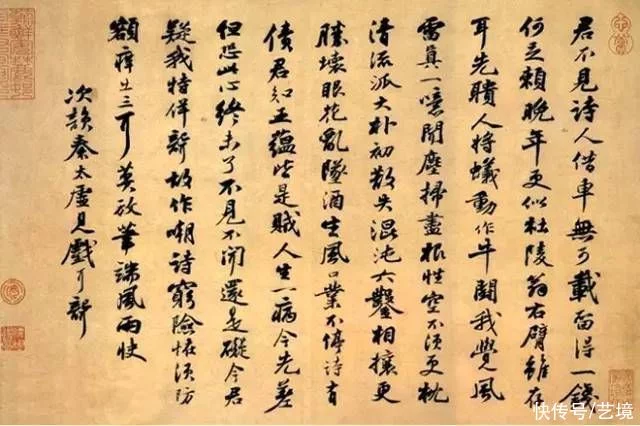 君不見詩人借車無可載留得一錢
何足賴晚年更似杜陵翁右臂雖存
耳先聵人將蟻動作牛鬭我覺風
雷真一噫聞塵掃盡根性空不須更枕
清流派大朴初散失混沌六鑿相攘更
勝壞眼花亂墜酒生風口業不停詩有
債君知五蘊皆是賊人生一病今先差
但恐此心終未了不見不聞還是礙今君
疑我特佯聾故作嘲詩窮險怪須防
額癢出三耳莫放筆端風雨快
次韻秦太虛見戲耳聾
快传号/艺境